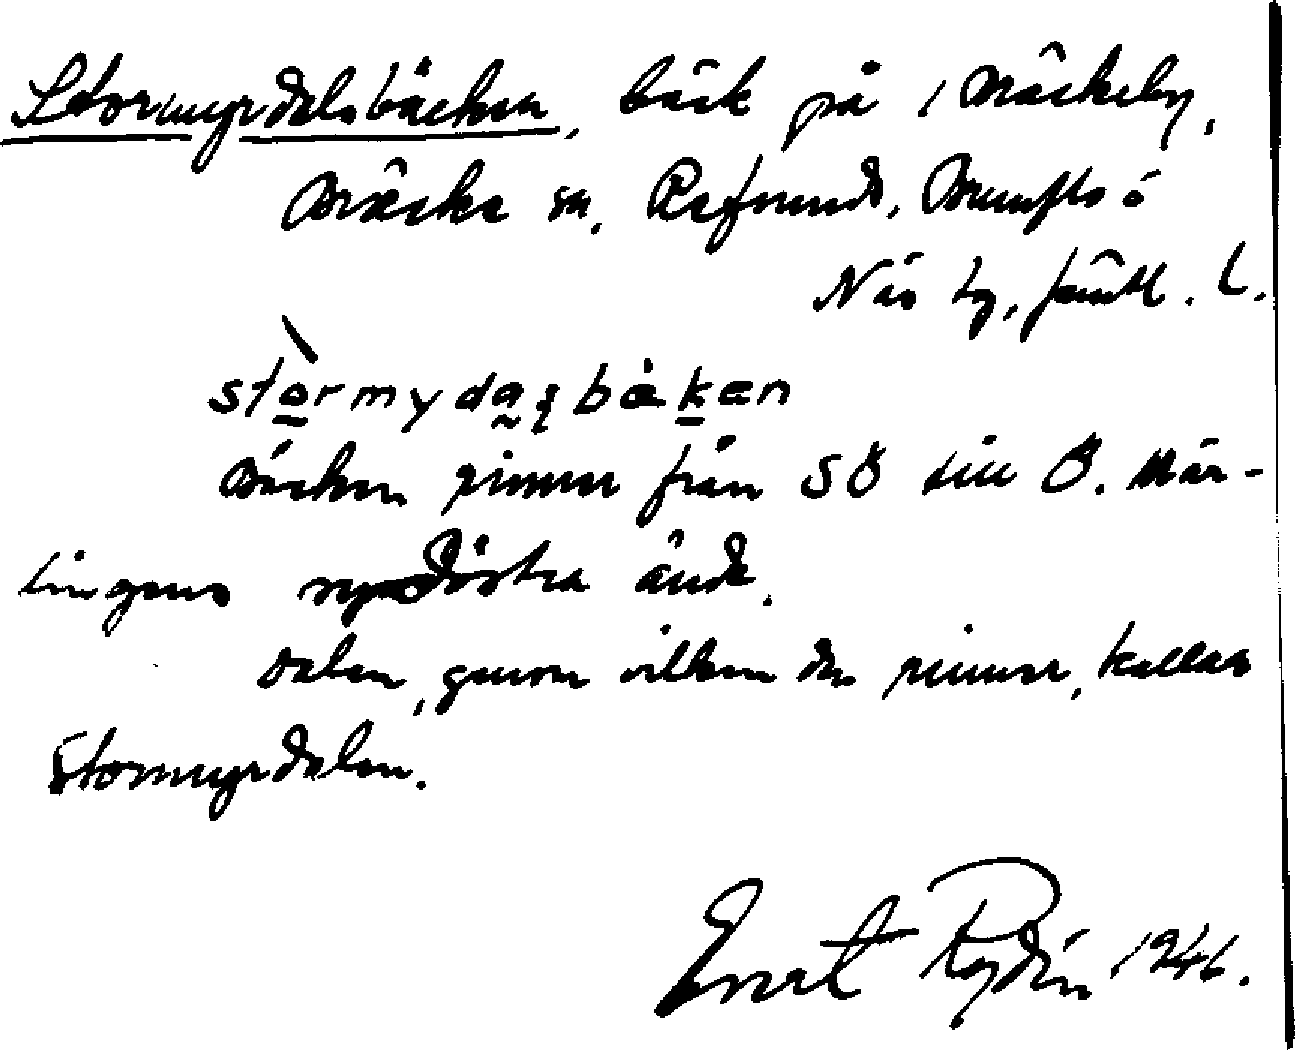 Stormyrdalsbäcken, bäck på 1 Bräckeby,
Bräcke sn. Refsunds, Brunflo ö
Näs tg, Jämtl. l.
stormydaʂbäken
Bäcken rinner från SÖ till Ö. Mär-
tingens sydöstra ände.
Dalen, genom vilken den rinner, kallas
Stormyrdalen.
Evert Rydén 1946.